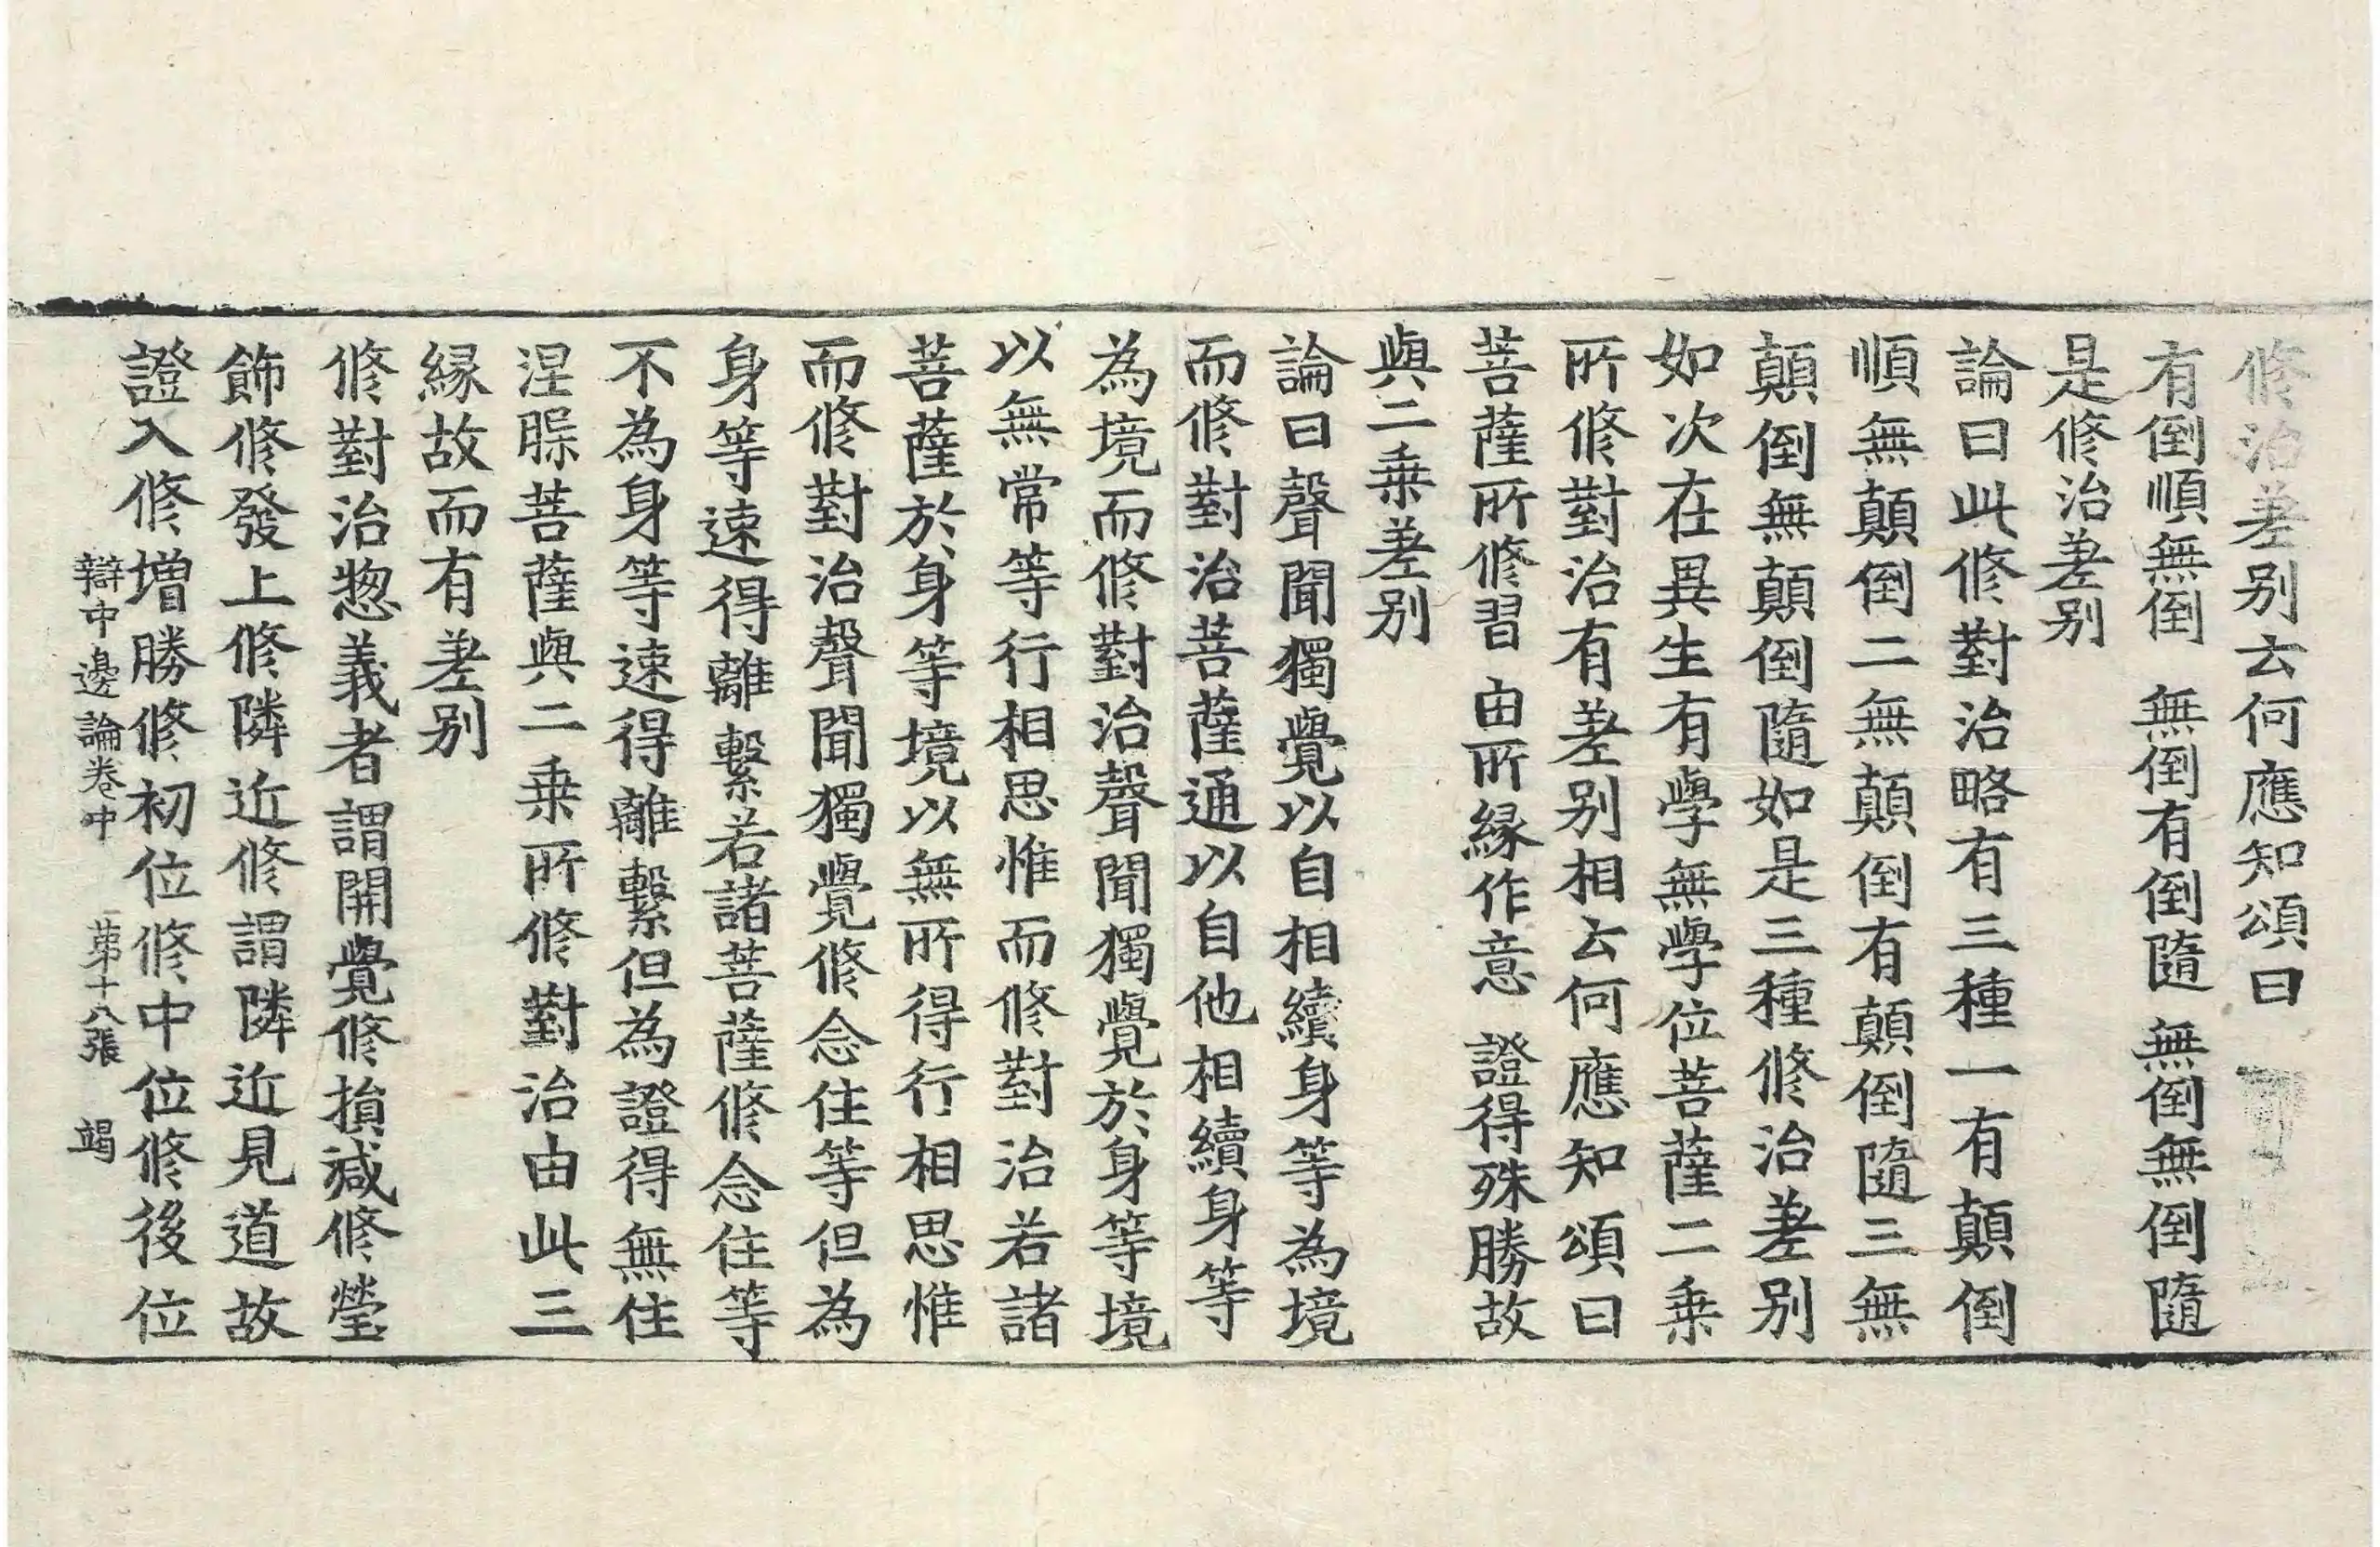 修治差别云何應知頌曰
有倒順無倒　無倒有倒隨　無倒無倒隨
是修治差别
論曰此修對治略有三種一有顛倒
順無顛倒二無顛倒有顛倒隨三無
顛倒無顛倒隨如是三種修治差别
如次在異生有學無學位菩薩二乗
所修對治有差别相云何應知頌曰
菩薩所修習　由所縁作意　證得殊勝故
與二乗差别
論曰聲聞獨覺以自相續身等為境
而修對治菩薩通以自他相續身等
為境而修對治聲聞獨覺於身等境
以無常等行相思惟而修對治若諸
菩薩於身等境以無所得行相思惟
而修對治聲聞獨覺修念住等但為
身等速得離繋若諸菩薩修念住等
不為身等速得離繋但為證得無住
涅槃菩薩與二乗所修對治由此三
縁故而有差别
修對治惣義者謂開覺修損減修瑩
飾修發上修隣近修謂隣近見道故
證入修增勝修初位修中位修後位
辯中邊論卷中　第十八張　竭